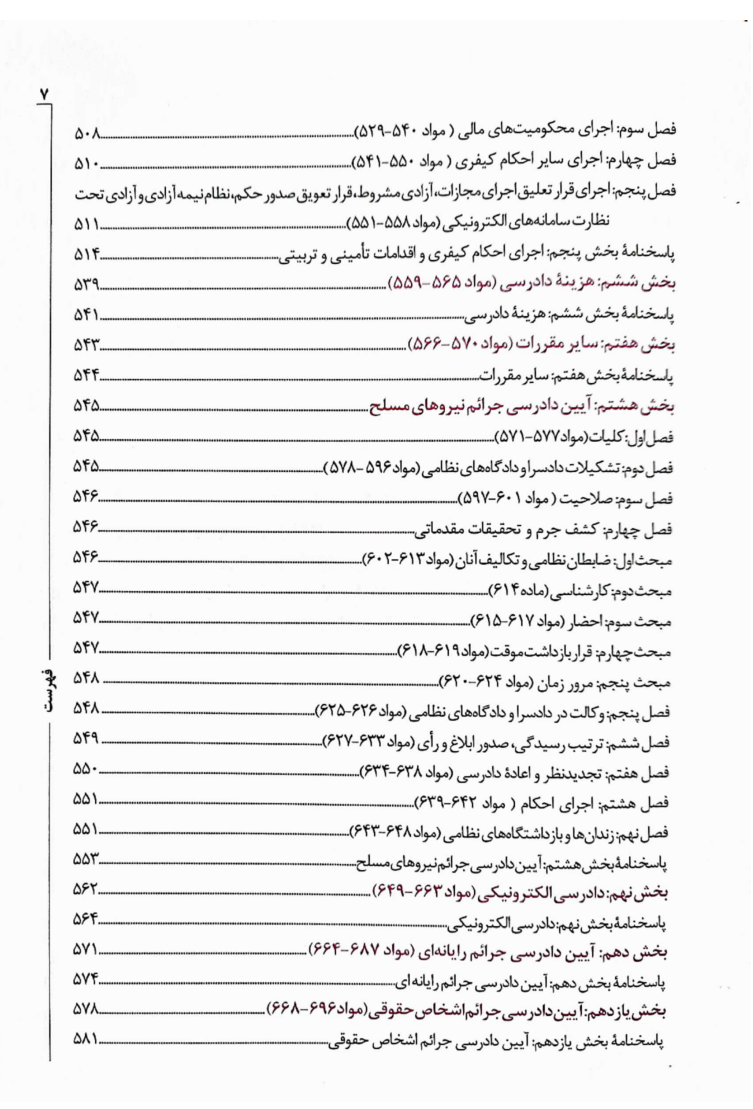 ۷
فصل سوم: اجرای محکومیت‌های مالی ( مواد ۵۴۰-۵۲۹)...۵۰۸
فصل چهارم: اجرای سایر احکام کیفری ( مواد ۵۵۰-۵۴۱)...۵۱۰
فصل پنجم: اجرای قرار تعلیق اجرای مجازات، آزادی مشروط، قرار تعویق صدور حکم، نظام نیمه آزادی و آزادی تحت
نظارت سامانه‌های الکترونیکی (مواد ۵۵۸-۵۵۱)...۵۱۱
پاسخنامۀ بخش پنجم: اجرای احکام کیفری و اقدامات تأمینی و تربیتی...۵۱۴
بخش ششم: هزینۀ دادرسی (مواد ۵۶۵-۵۵۹)...۵۳۹
پاسخنامۀ بخش ششم: هزینۀ دادرسی...۵۴۱
بخش هفتم: سایر مقررات (مواد ۵۷۰-۵۶۶)...۵۴۳
پاسخنامۀ بخش هفتم: سایر مقررات...۵۴۴
بخش هشتم: آیین دادرسی جرائم نیروهای مسلح...۵۴۵
فصل اول: کلیات (مواد ۵۷۷-۵۷۱)...۵۴۵
فصل دوم: تشکیلات دادسرا و دادگاه‌های نظامی (مواد ۵۹۶-۵۷۸)...۵۴۵
فصل سوم: صلاحیت ( مواد ۶۰۱-۵۹۷)...۵۴۶
فصل چهارم: کشف جرم و تحقیقات مقدماتی...۵۴۶
مبحث اول: ضابطان نظامی و تکالیف آنان (مواد ۶۱۳-۶۰۲)...۵۴۶
مبحث دوم: کارشناسی (ماده ۶۱۴)...۵۴۷
مبحث سوم: احضار (مواد ۶۱۷-۶۱۵)...۵۴۷
مبحث چهارم: قرار بازداشت موقت (مواد ۶۱۹-۶۱۸)...۵۴۷
مبحث پنجم: مرور زمان (مواد ۶۲۴-۶۲۰)...۵۴۸
فصل پنجم: وکالت در دادسرا و دادگاه‌های نظامی (مواد ۶۲۶-۶۲۵)...۵۴۸
فصل ششم: ترتیب رسیدگی، صدور ابلاغ و رأی (مواد ۶۳۳-۶۲۷)...۵۴۹
فصل هفتم: تجدیدنظر و اعادۀ دادرسی (مواد ۶۳۸-۶۳۴)...۵۵۰
فصل هشتم: اجرای احکام ( مواد ۶۴۲-۶۳۹)...۵۵۱
فصل نهم: زندان‌ها و بازداشتگاه‌های نظامی (مواد ۶۴۸-۶۴۳)...۵۵۱
پاسخنامۀ بخش هشتم: آیین دادرسی جرائم نیروهای مسلح...۵۵۳
بخش نهم: دادرسی الکترونیکی (مواد ۶۶۳-۶۴۹)...۵۶۲
پاسخنامۀ بخش نهم: دادرسی الکترونیکی...۵۶۴
بخش دهم: آیین دادرسی جرائم رایانه‌ای (مواد ۶۸۷-۶۶۴)...۵۷۱
پاسخنامۀ بخش دهم: آیین دادرسی جرائم رایانه‌ای...۵۷۴
بخش یازدهم: آیین دادرسی جرائم اشخاص حقوقی (مواد ۶۹۶-۶۶۸)...۵۷۸
پاسخنامۀ بخش یازدهم: آیین دادرسی جرائم اشخاص حقوقی...۵۸۱
فهرست